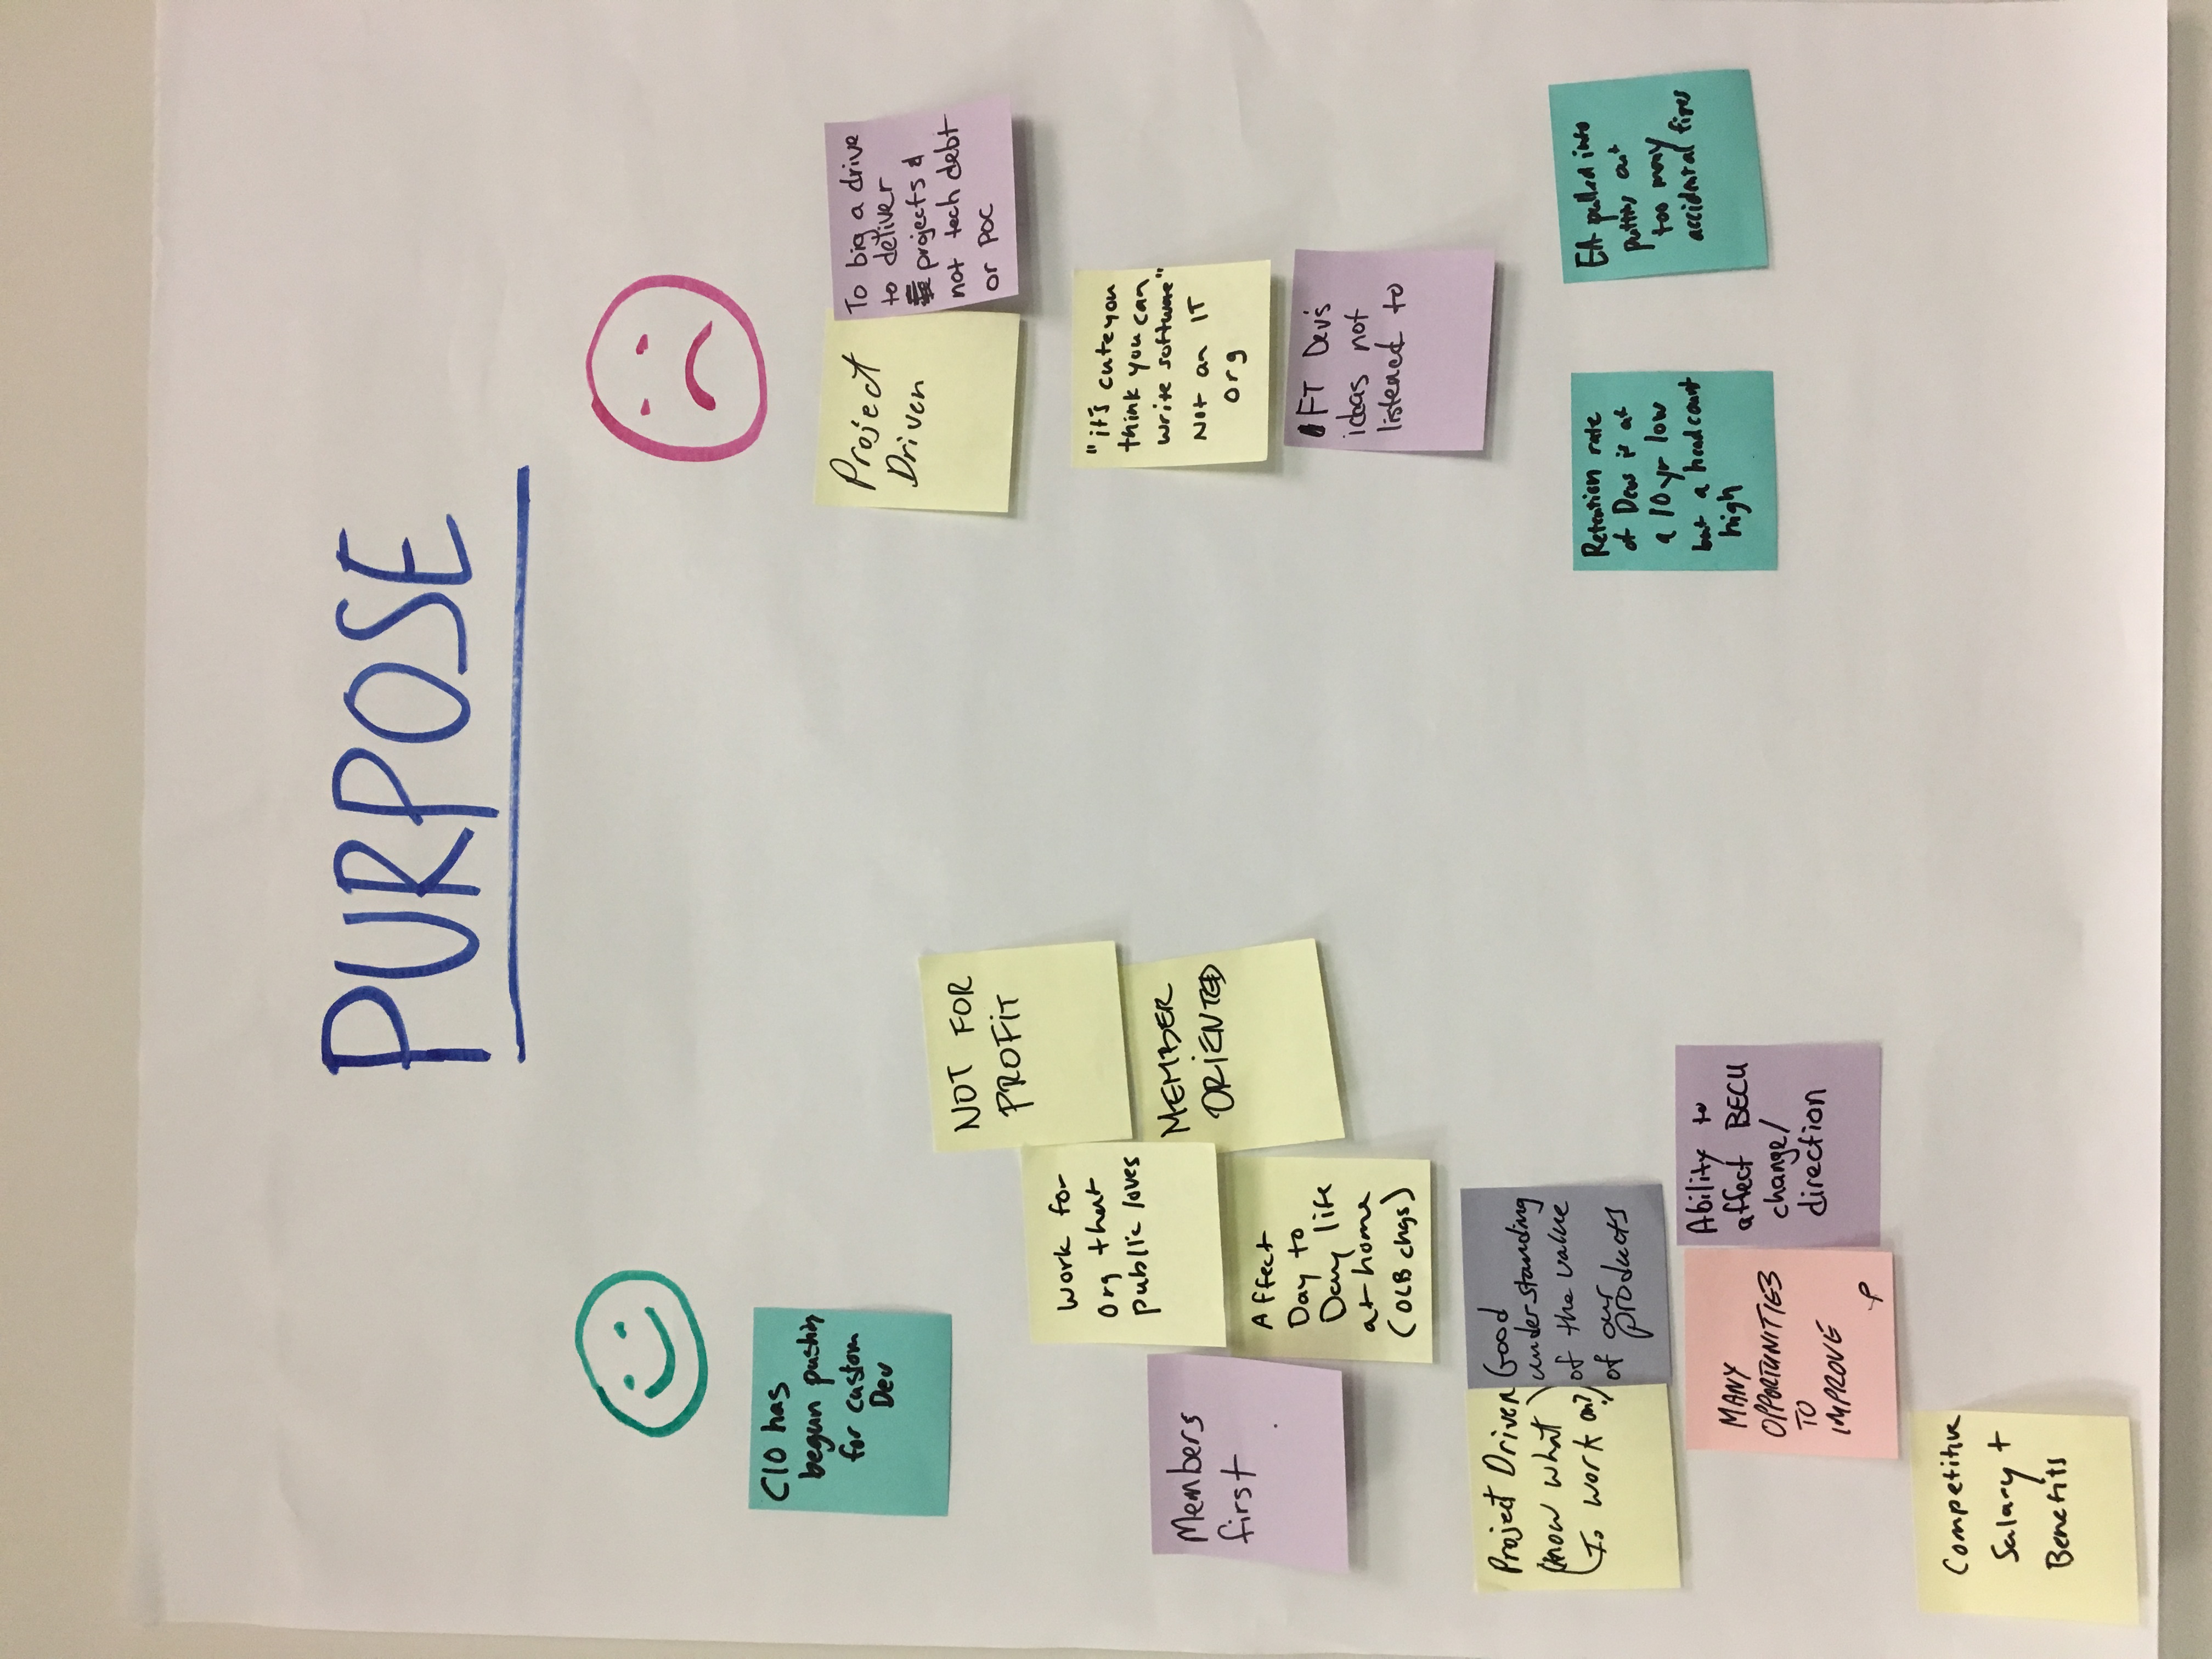 PURPOSE
CIO has
begun pushing
for custom
Dev
NOT FOR
PROFIT
Work for
Org that
public loves
MEMBER
ORIENTED
Members
first
Affect
Day to
Day life
at home
(OLB chgs)
Project Driven
(know what
to work on?)
Good
understanding
of the value
of our
products
MANY
OPPORTUNITIES
TO
IMPROVE
Ability to
affect BECU
change/
direction
Competitive
Salary +
Benefits
Project
Driven
To big a drive
to deliver
projects &
not tech debt
or POC
"it's cute you
think you can
write software"
Not an IT
org
FT Dev's
ideas not
listened to
Retention rate
of Devs is at
a 10 yr low
but a headcount
high
EA pulled into
putting out
too many
accidental fires